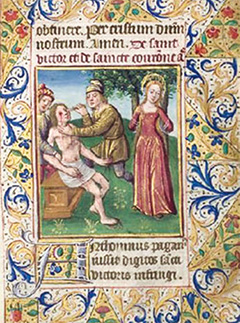 obtinere. Per cristum dnm
nostrum. Amen. De saint
victor et de saincte couronne a͞
nthonius pagan
iussit digitos sc̄i
victoris infringi.